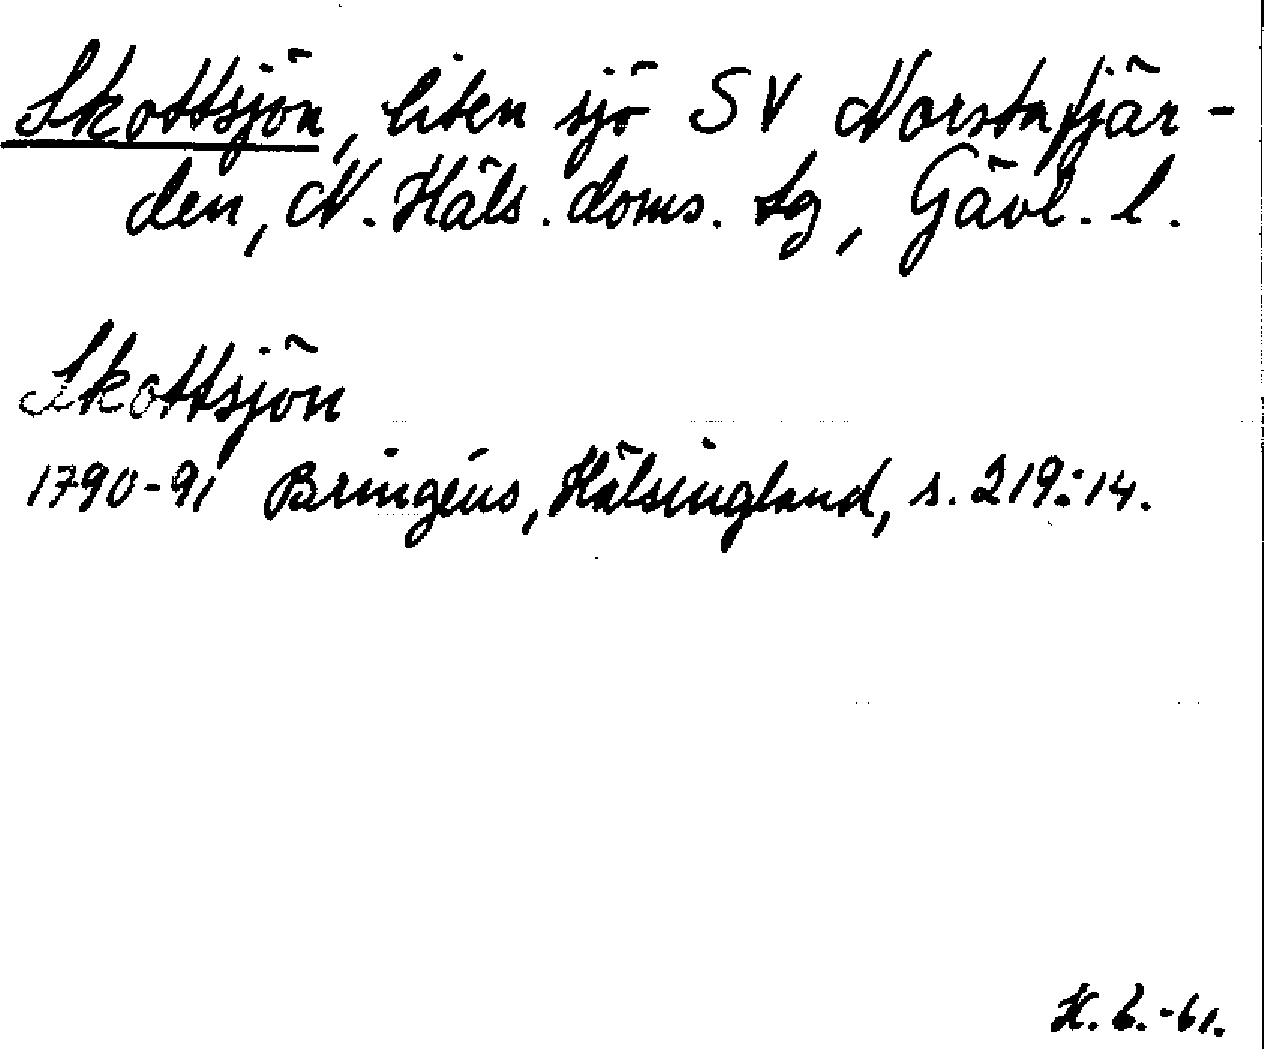 Skottsjön, liten sjö SV Norstafjär-
den, N. Häls. doms. sg, Gävl. l.
Skottsjön
1790-91 Bringéus, Hälsingland, s. 219:14.
-61.